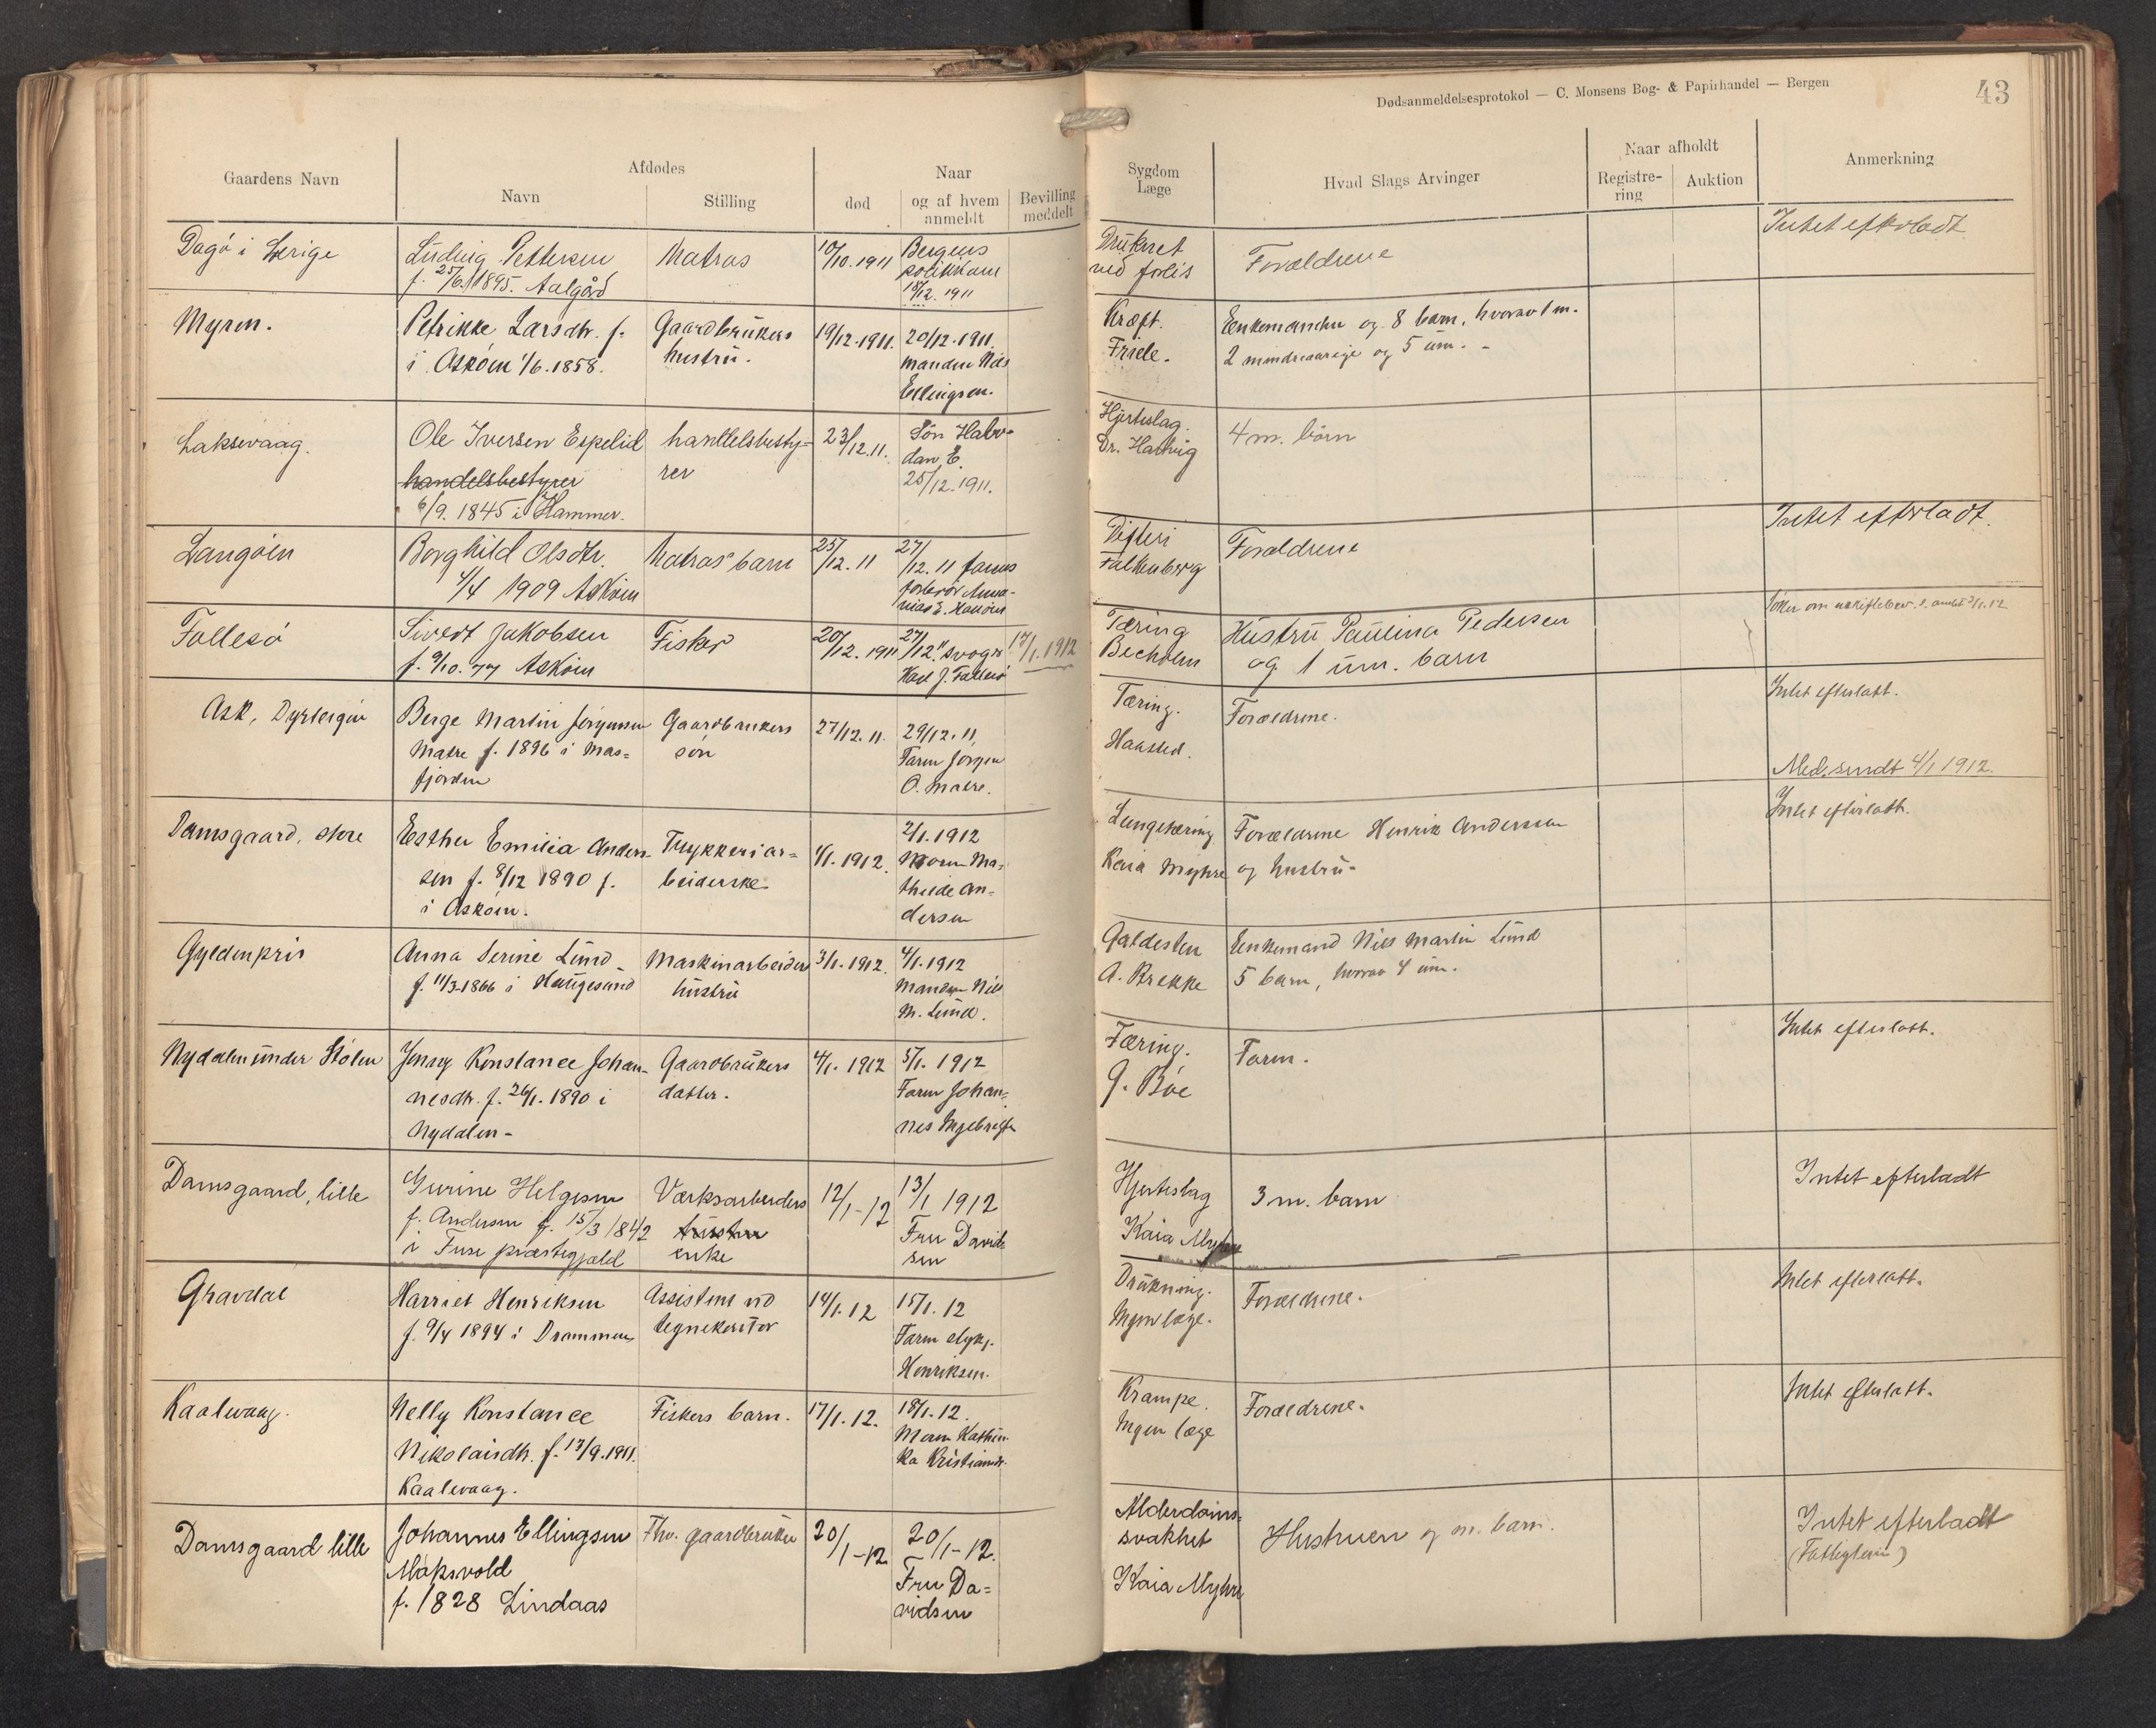 Dødsanmeldelsesprotokol — C. Monsens Bog- & Papirhandel — Bergen
43
Gaardens Navn
Afdødes
Navn
Stilling
Naar
død
og af hvem
anmeldt
Bevilling
meddelt
Sygdom
Læge
Hvad Slags Arvinger
Naar afholdt
Registre-
ring
Auktion
Anmerkning
Dagö i
Ludvig Pettersen
f. 25/6 1895. Aalgård
Matros
10/10.1911
Bergens
politikam
18/12. 1911
Druknet
ved forlis
Forældrene
Intet efterladt
Myren.
Petrikke Larsdtr. f.
i Askøen 1/6.1858.
Gaardbrukers
hustru.
19/12.1911.
20/12.1911.
manden Nils
Ellingsen.
Kræft.
Friele.
Enkemanden og 8 barn, hvorav 1 m.
2 mindreaarige og 5 um. -
Laksevaag.
Ole Iversen Espelid
handelsbestyrer
6/9. 1845 i Hammer.
handelsbesty=
rer
23/12.11.
Søn Halv-
dan E.
25/12.1911.
Hjerteslag.
Dr. Hartvig
4 m. børn
Langøen
Borghild Olsdtr.
4/4 1909 Askøen
Matros barn
25/12.11
27/12.11 farens
Difteri
Falkenberg
Forældrene
Intet efterladt.
Follesø
Sivert Jakobsen
f. 9/10.77 Askøen
Fisker
20/12.1911
27/12.11 svogr
Karl J. Follesø
17/1.1912
Tæring
Becholm
Hustru Paulina Pedersen
og 1 um. barn
Søker om uskiftebev.
Ask, Dyrteigen
Berge Martin Jørgensen
Matre f. 1896 i Mas=
fjorden
Gaardbrukers
søn
27/12.11.
29/12.11.
Faren Jørgen
O. Matre.
Tæring.
Haasted.
Forældrene.
Intet efterlatt.
Med. sendt 4/1 1912.
Damsgaard, store
Esther Emilia Anders-
sen f. 8/12 1890 f.
i Askøen.
Trykkeriar=
beiderske
1/1.1912.
2/1.1912
Moren Ma-
thilde An-
dersen
Lungetæring
Kaia Myhre
Forældrene Henrik Anderssen
og hustru-
Intet efterlatt.
Gyldenpris
Anna Serine Lund
f. 11/3-1866 i Haugesund
Maskinarbeiders
hustru
3/1.1912.
4/1.1912
Manden Nils
M. Lund.
Galdesten
A. Brekke
Enkemand Nils Martin Lund
5 barn, hvorav 4 um.
Nydalen under Stølen
Jenny Konstance Johan-
nesdtr. f. 26/1. 1890 i
Nydalen-
Gaardbrukers
datter.
4/1. 1912
5/1. 1912
Faren Johan=
nes
Tæring.
G. Bøe
Faren.
Intet efterlatt.
Damsgaard, lille
Gurine Helgesen
f. Andersen f. 15/3 1842
i Fuse præstegjæld
Værksarbeiders
hustru
enke
12/1-12
13/1 1912
Fru David-
sen
Hjerteslag
Kaia Myhre
3 m. barn
Intet efterladt
Gravdal
Harriet Henriksen
f. 9/4 1894 i Drammen
Assistent ved
tegnekontor
14/1.12
15/1.12
Faren
Henriksen.
Drukning.
Ingen læge.
Forældrene.
Intet efterlatt.
Kaalvaag.
Nelly Konstance
Nikolaisdtr. f. 13/9.1911.
Kaalevaag.
Fiskers barn.
17/1.12.
18/1.12.
Moren Kathin-
ka Kristiansd.
Krampe.
Ingen læge
Forældrene.
Intet efterlatt.
Damsgaard lille
Johannes Ellingsen
Maksvold
f. 1828 Lindaas
Fhv. gaardbruker
20/1-12
20/1-12.
Fru Da=
vidsen
Alderdoms=
svakhet
Kaia Myhre
Hustruen og m. barn.
Intet efterladt
(Fattiglem)